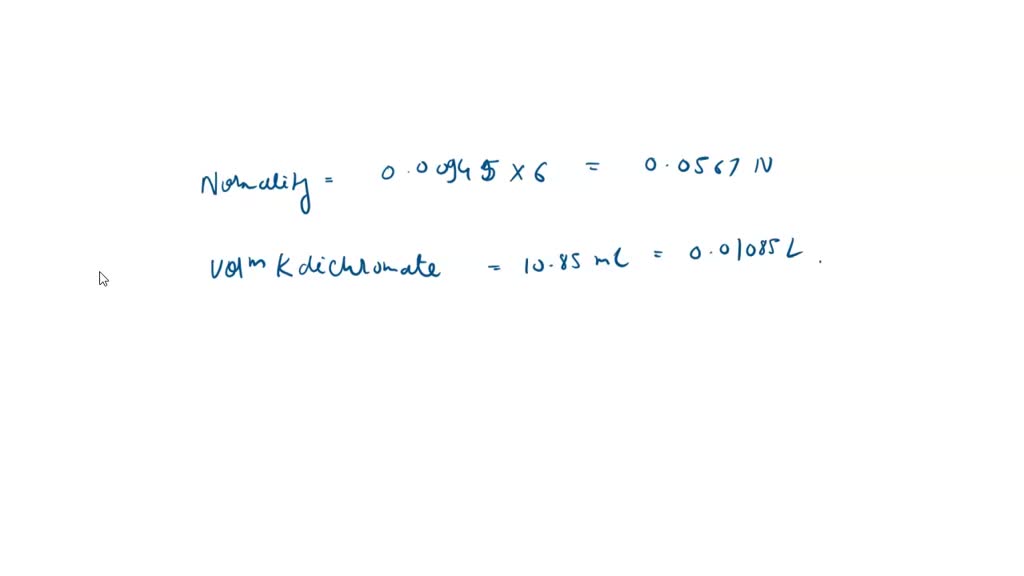 Normality = 0.00945 X 6 = 0.0567 N
Volm K dichromate = 10.85 ml = 0.01085 L .